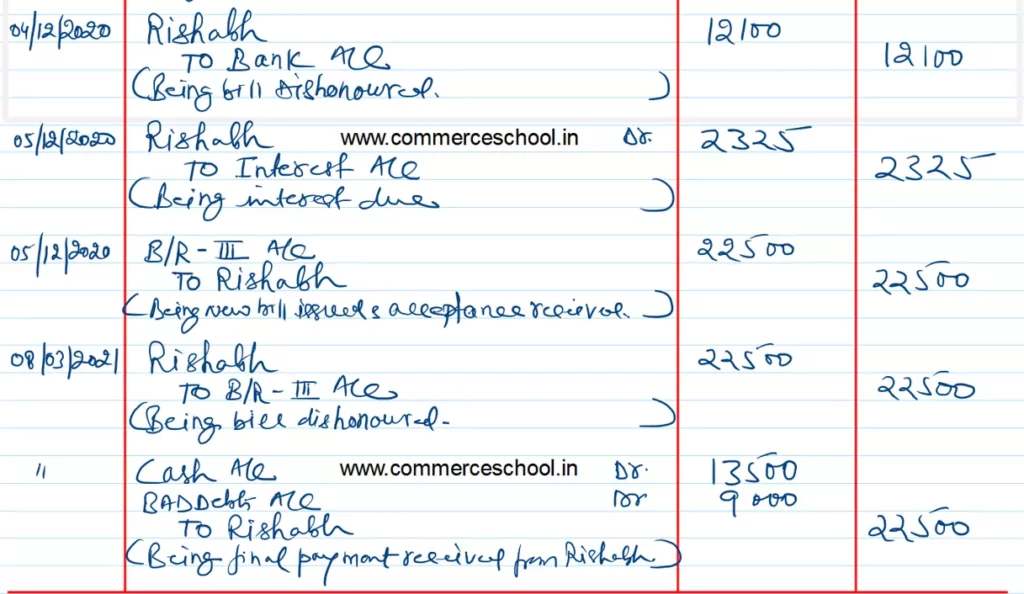 04/12/2020 Rishabh 12100
TO Bank A/C 12100
(Being bill dishonoured. )
05/12/2020 Rishabh www.commerceschool.in Dr. 2325
TO Interest A/C 2325
(Being interest due )
05/12/2020 B/R - III A/C 22500
TO Rishabh 22500
(Being new bill issued & acceptance received. )
08/03/2021 Rishabh 22500
TO B/R - III A/C 22500
(Being bill dishonoured - )
" Cash A/C www.commerceschool.in Dr. 13500
BAD Debts A/C Dr 9000
TO Rishabh 22500
(Being final payment received from Rishabh. )